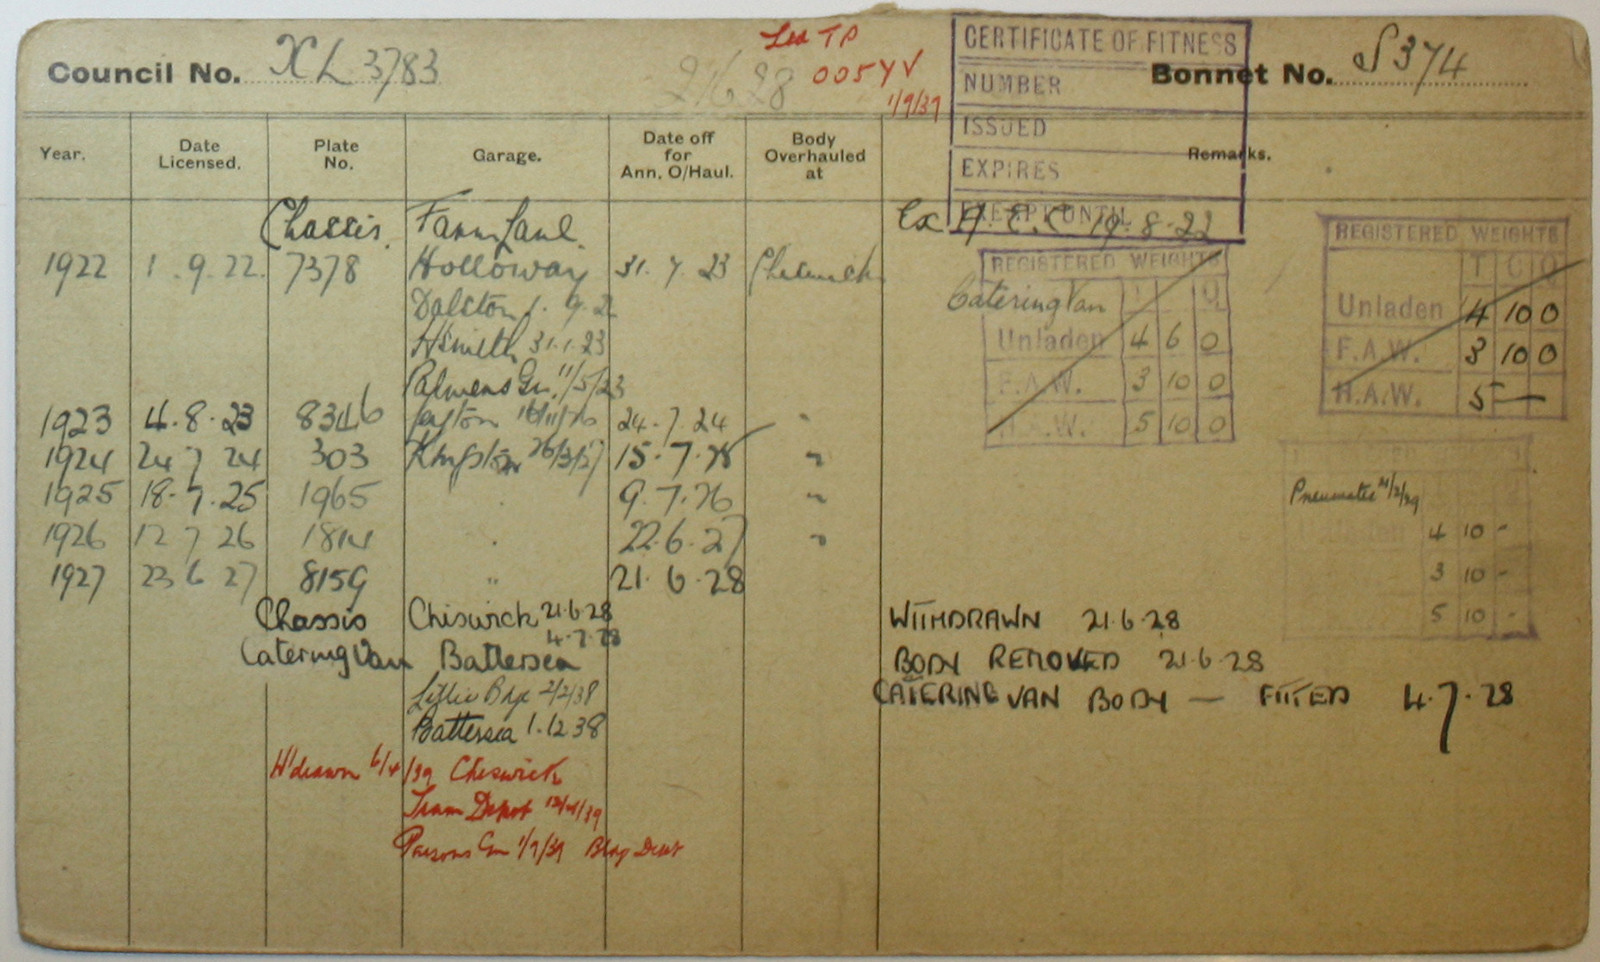 Council No. XL 3783
21/6/28
TP
005YV
1/9/39
CERTIFICATE OF FITNESS
NUMBER
ISSUED
EXPIRES
EXEMPT UNTIL
Bonnet No. S374
Year. Date Licensed. Plate No. Garage. Date off for Ann. O/Haul. Body Overhauled at Remarks.
Chassis. Farm Lane. Ex A.E.C 19.8.22
1922 1.9.22. 7378 Holloway 31.7.23 Chiswick
Dalston
H'smith 31.1.23
Palmers Gn. 11/5/23
1923 4.8.23 8346 Leyton 24.7.24 "
1924 24 7 24 303 Kingston 15.7.25 "
1925 18.7.25 1965 9.7.26 "
1926 12 7 26 1814 22.6.27 "
1927 23 6 27 8159 " 21.6.28
Chassis Chiswick 21.6.28
4.7.28
Catering Van Battersea
2/2/38
Battersea 1.12.38
W'drawn 6/4/39 Chiswick
Tram Depot
Parsons Gn 1/9/39
REGISTERED WEIGHTS
Catering Van
Unladen 4 6 0
F.A.W. 3 10 0
H.A.W. 5 10 0
REGISTERED WEIGHTS
T C Q
Unladen 4 10 0
F.A.W. 3 10 0
H.A.W. 5 —
REGISTERED WEIGHTS
Pneumatic
Unladen 4 10 -
3 10 -
5 10 -
WITHDRAWN 21.6.28
BODY REMOVED 21.6.28
CATERING VAN BODY — FITTED 4.7.28